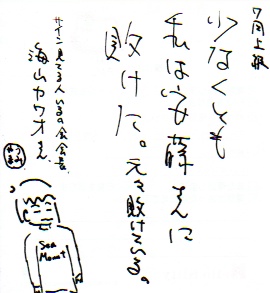 7月上旬
少なくとも
私は安藤さんに
敗けた。元々敗けている。
サイン見てる人いるの会会長
海山カワオさん
Sea
Mount